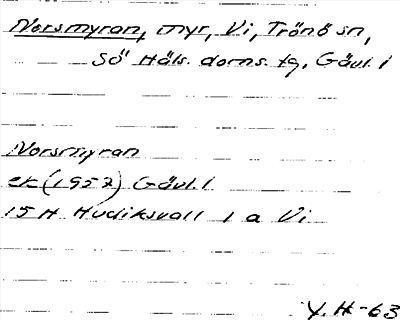 Norsmyran, myr, Vi, Trönö sn,
Sö Häls. doms. tg, Gävl. l
Norsmyran
ek (1957) Gävl. l
15 H Hudiksvall 1 a Vi
Y. H -63